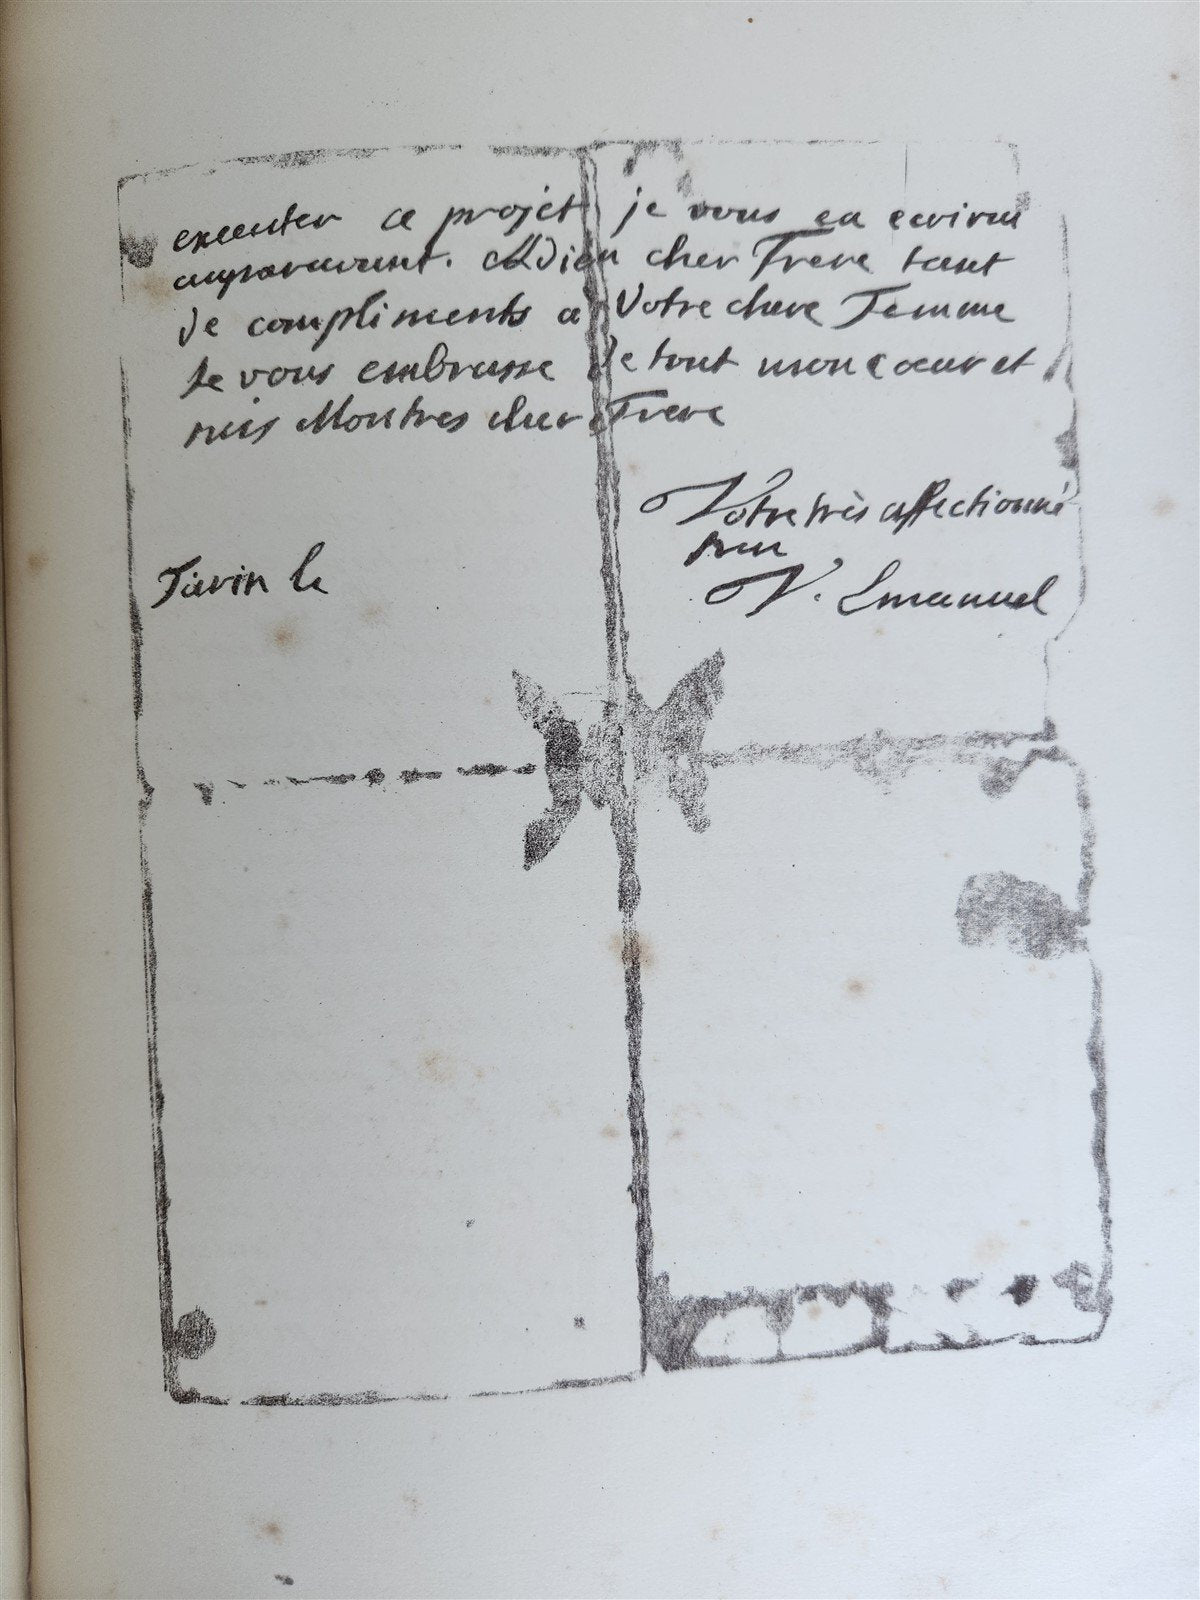 executer ce projet je vous en ecrirai
auparavant. Adieu cher Frere tant
de compliments a Votre chere Femme
Je vous embrasse de tout mon coeur et
suis Mon tres cher Frere
Votre très affectionné
V. Emanuel
Turin le